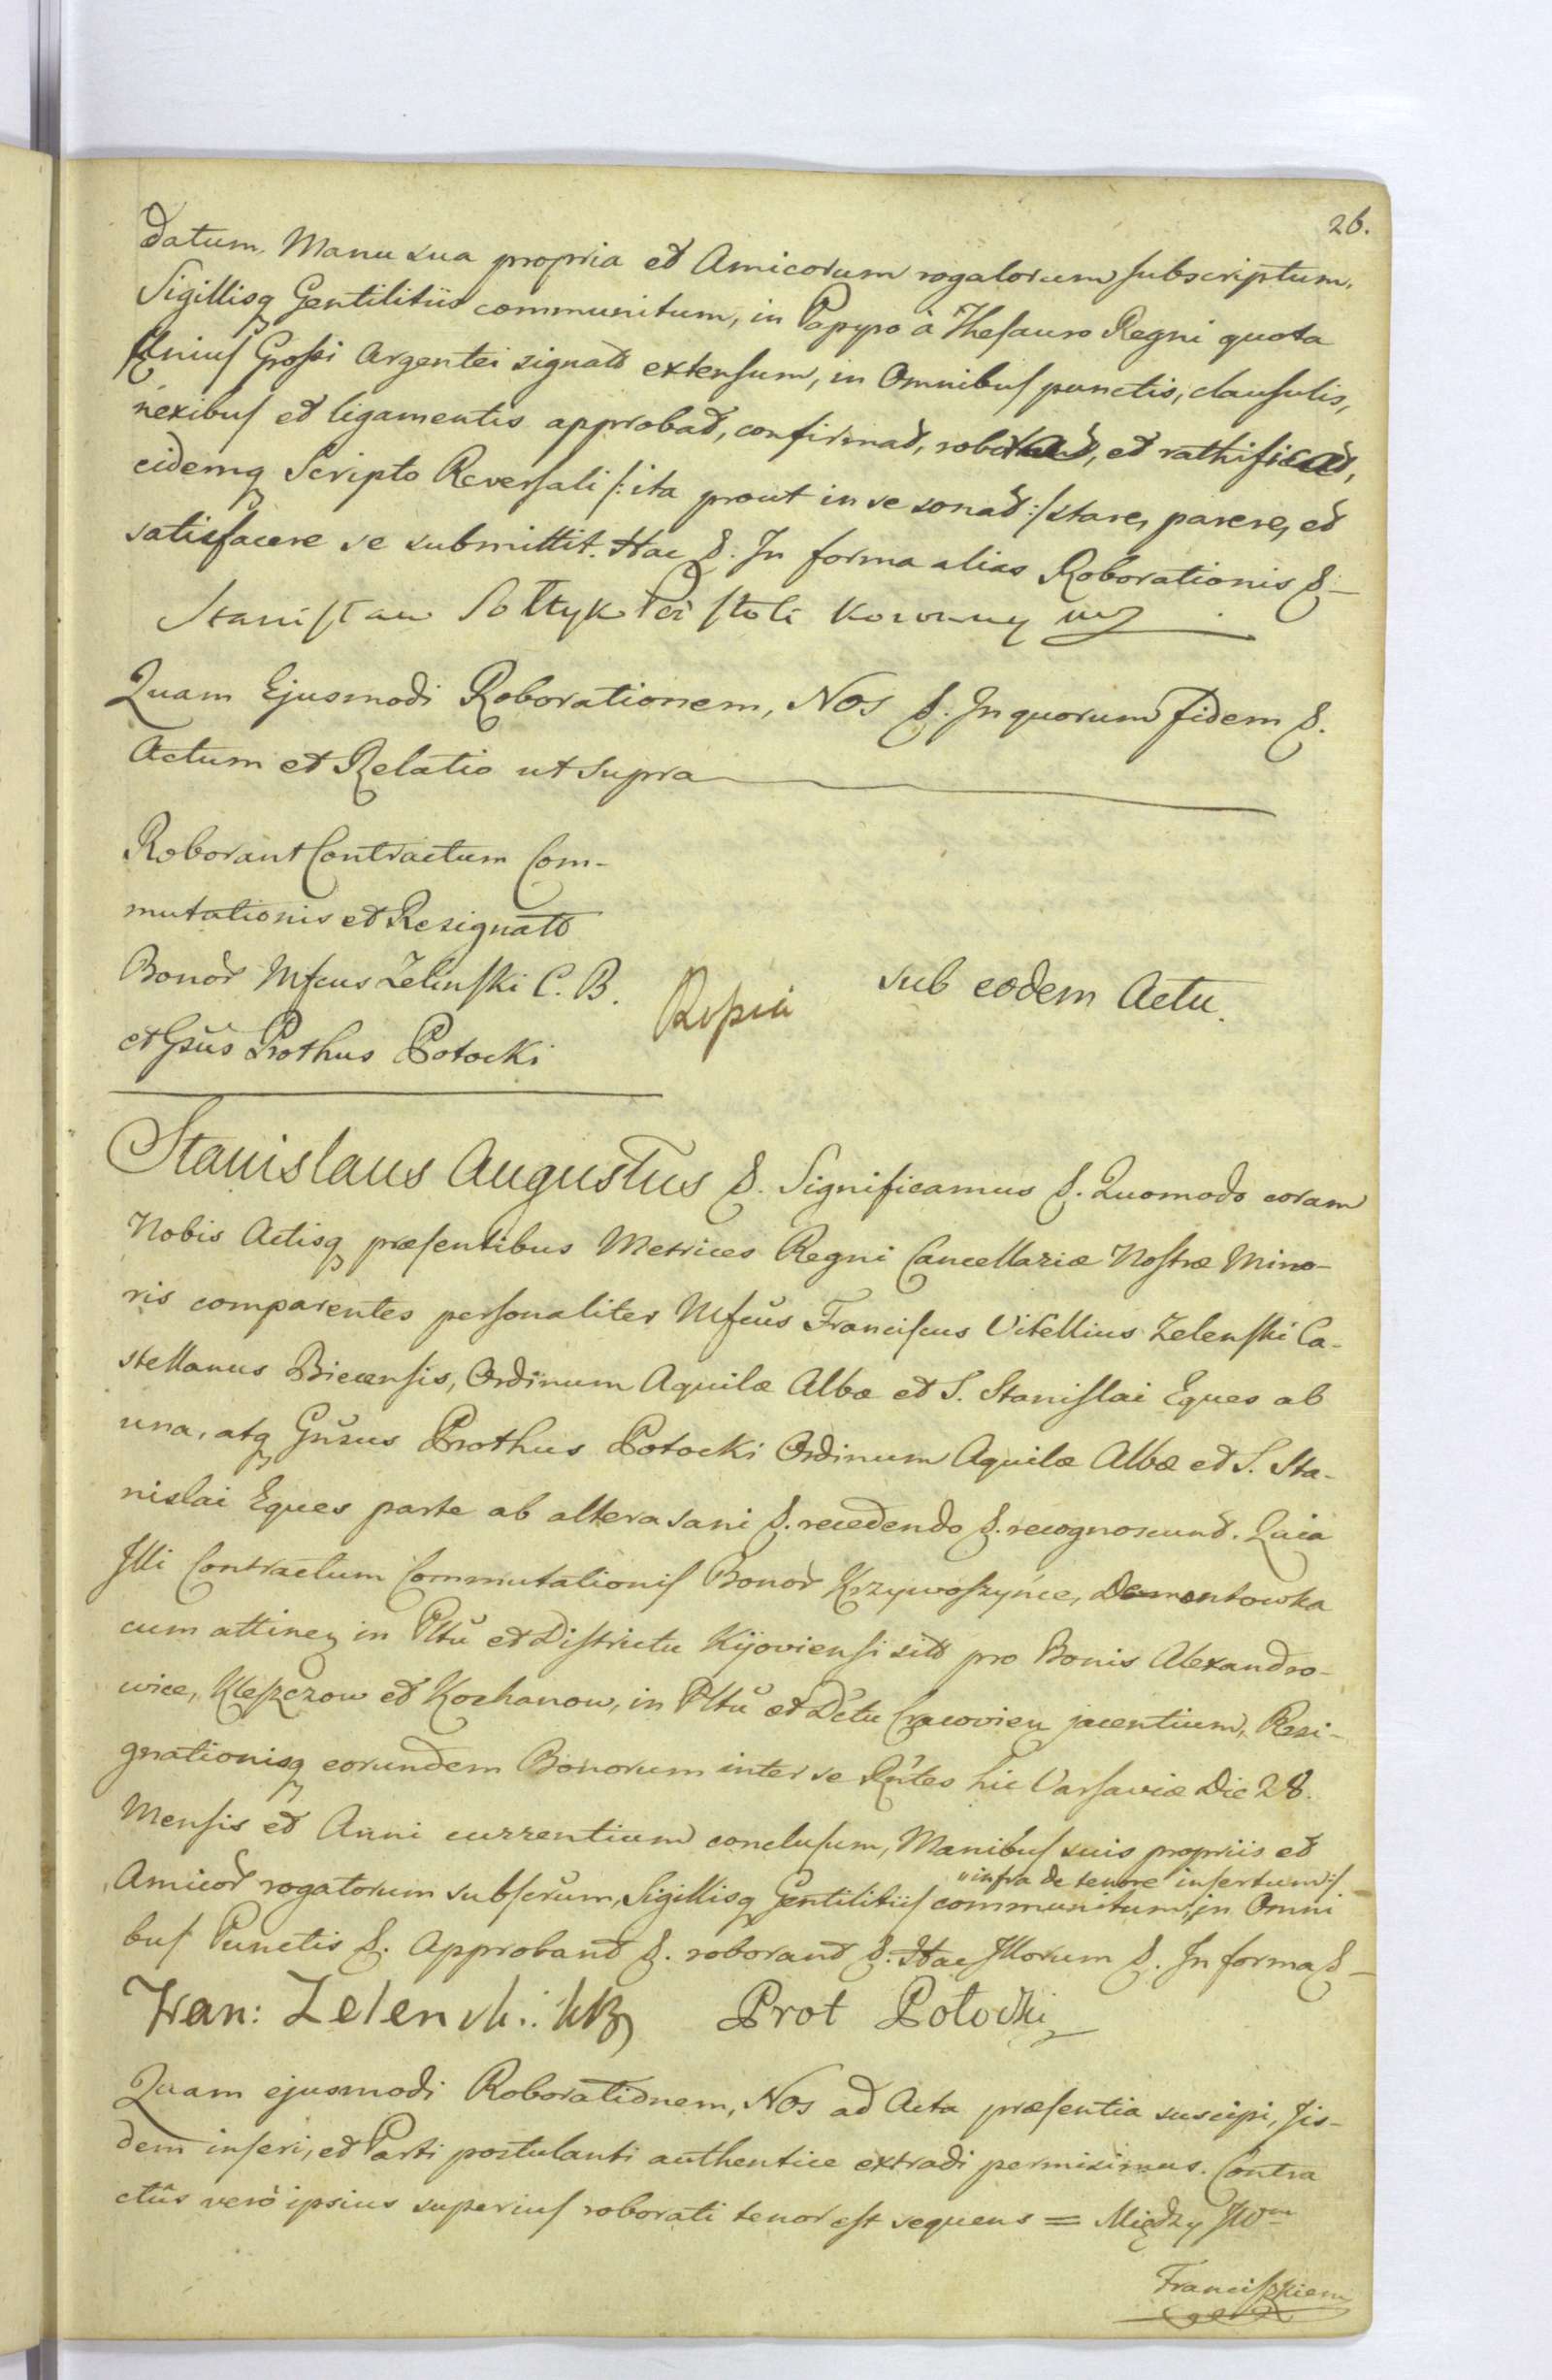 26.
datum, Manu sua propria et Amicorum rogatorum subscriptum,
Sigillisq Gentilitiis communitum, in Papyro à Thesauro Regni quota
Unius Grossi Argentei signato extensum, in Omnibus punctis, clausulis,
nexibus et ligamentis approbat, confirmat, roborat, et rathificat,
eidemq Scripto Reversali /: ita prout in se sonat :/ stare, parere, et
satisfacere se submittit. Hac &. In forma alias Roborationis &-
Stanisław Sołtyk Pd stoli Koronny mp
Quam Ejusmodi Roborationem, Nos &. In quorum Fidem &.
Actum et Relatio ut supra
Roborant Contractum Com-
mutationis et Resignatt
Bonor Mfcus Zelinski C. B.
et Gsus Prothus Potocki
sub eodem Actu.
Stanislaus Augustus &. Significamus &. Quomodo coram
Nobis Actisq præsentibus Metrices Regni Cancellariæ Nostræ Mino-
ris comparentes personaliter Mfcus Franciscus Vitellius Zelenski Ca-
stellanus Biecensis, Ordinum Aquilæ Albæ et S. Stanislai Eques ab
una, atq Gnsus Prothus Potocki Ordinum Aquilæ Albæ et S. Sta-
nislai Eques parte ab altera sani &. recedendo &. recognoscunt. Quia
Illi Contractum Commutationis Bonor Krzywoszynce, Demontowka
cum attinen in Pltu et Districtu Kijoviensi sitt pro Bonis Alexandro-
wice, Kleszczow et Kochanow, in Pltu et Dctu Cracovien jacentium, Resi-
gnationisq eorundem Bonorum inter se Rntes hic Varsaviæ Die 28.
Mensis et Anni currentium conclusum, Manibus suis propriis et
Amicor rogatorum subscrum, Sigillisq Gentilitiis communitum, "infra de tenore insertum :/ in Omni
bus Punctis &. Approbant &. roborant &. Hac Illorum &. In forma &-
Fran: Zelenski: KB Prot Potocki
Quam ejusmodi Roborationem, Nos ad Acta præsentia suscipi, Iis-
dem inseri, et Parti postulanti authentice extradi permisimus. Contra
ctus verò ipsius superius roborati tenor est sequens = Między JWm
Franciszkiem